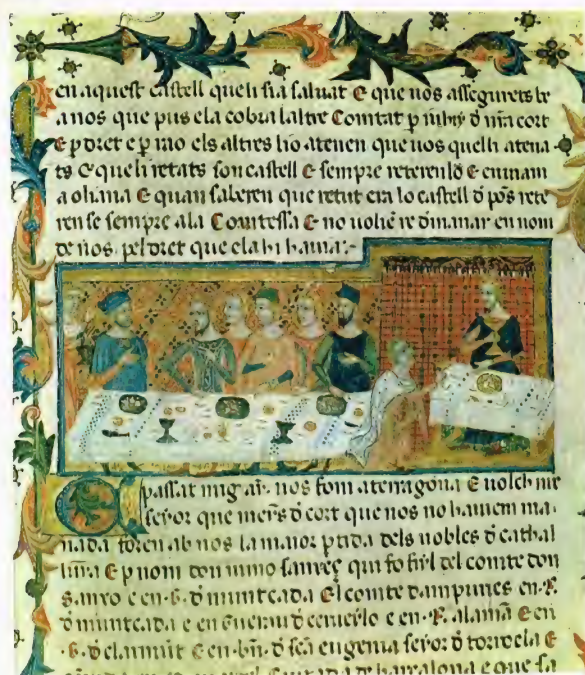 en aquest castell queli sia saluat E que nos assegurets be
a nos que pus ela cobra laltre Comtat p iuhij d nr̃a cort
E p dret e p rao els altres lio atenen que uos quelh atena
ts E queli retats son castell E sempre reterenlo E entram
a oliana E quan saberen que retut era lo castell d pōs rete
ren se sempre ala Comtessa E no uoliẽ re dmanar en nom
de uos pel dret que ela hi hauia:-
passat mig añ nos fom a terragona E uolch nr̃e
seyor que mens d cort que nos no hauiem ma
nada foren ab nos la maior ptida dels nobles d cathal
unia E p nom don nuno sanxeç qui fo fiyl del comte don
Sanxo e en .G. d muntcada El comte dampuries en .R.
d muntcada e en Guerau d ceruerlo e en .R. alama E en
.G. d claramūt E en .bn̄. d sc̄a eugenia seyor d torroela E
de barçalona e que fa